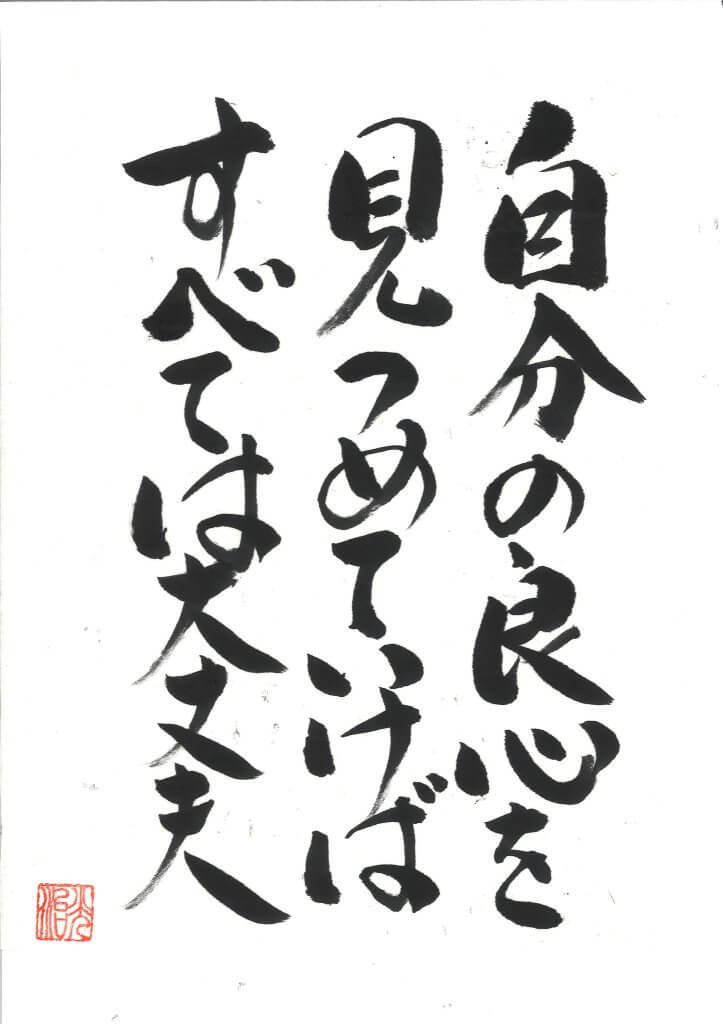 自分の良心を
見つめていけば
すべては大丈夫